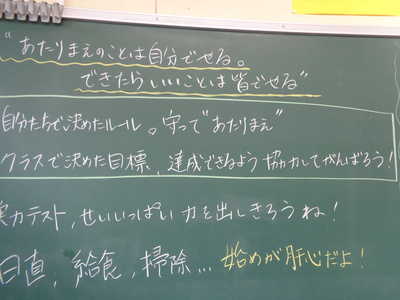 "あたりまえのことは自分でせる。
できたらいいことは皆でせる"
自分たちで決めたルール。守って"あたりまえ"
クラスで決めた目標、達成できるよう協力してがんばろう!
実力テスト,せいいっぱい力を出しきろうね!
日直,給食,掃除... 始めが肝心だよ!